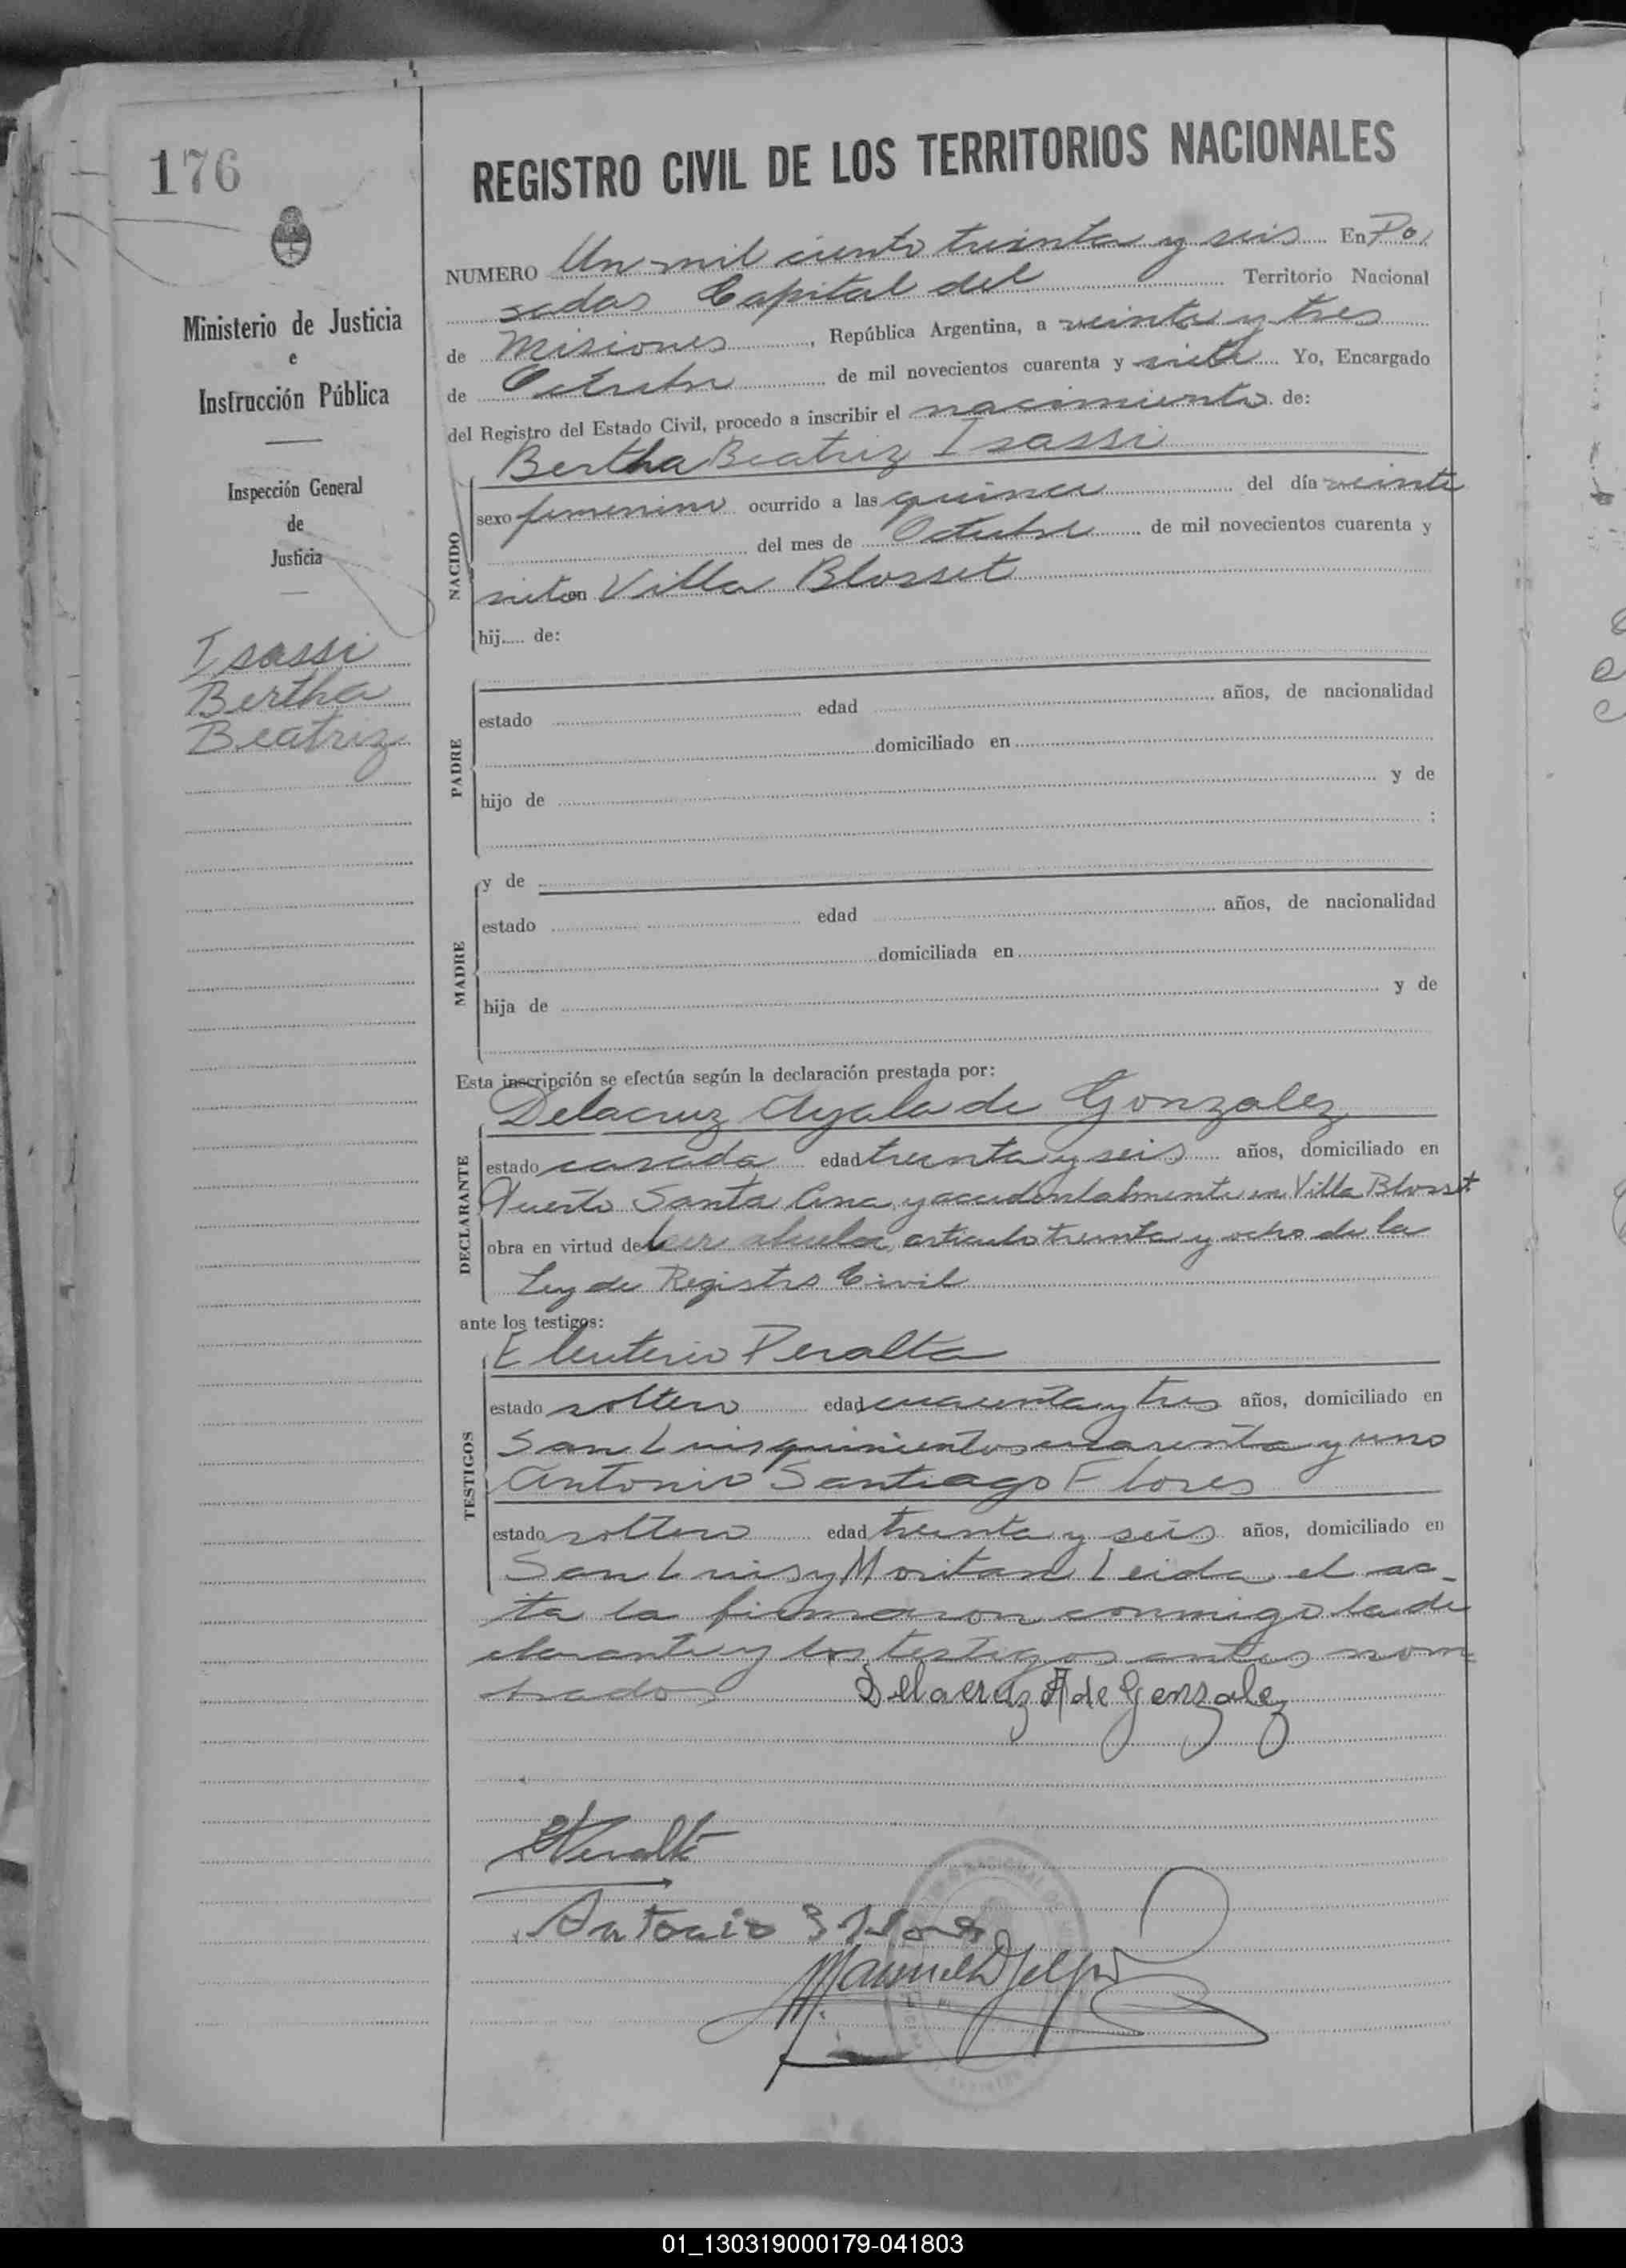 176
Ministerio de Justicia
e
Instrucción Pública
Inspección General
de
Justicia
Isassi
Bertha
Beatriz
REGISTRO CIVIL DE LOS TERRITORIOS NACIONALES
NUMERO Un mil ciento treinta y seis En Po,
sadas Capital del Territorio Nacional
de Misiones, República Argentina, a veinte y tres
de Octubre de mil novecientos cuarenta y siete Yo, Encargado
del Registro del Estado Civil, procedo a inscribir el nacimiento de:
NACIDO
Bertha Beatriz Isassi
sexo femenino ocurrido a las quince del día veinte
del mes de Octubre de mil novecientos cuarenta y
siete en Villa Blosset
hij..... de:
PADRE
estado edad años, de nacionalidad
domiciliado en
hijo de y de
;
MADRE
y de
estado edad años, de nacionalidad
domiciliada en
hija de y de
Esta inscripción se efectúa según la declaración prestada por:
DECLARANTE
Delacruz Ayala de Gonzalez
estado casada edad treinta y seis años, domiciliado en
Puerto Santa Ana, y accidentalmente en Villa Blosset
obra en virtud de ser abuela, articulo treinta y ocho de la
Ley de Registro Civil
ante los testigos:
TESTIGOS
Eleuterio Peralta
estado soltero edad cuarenta y tres años, domiciliado en
San Luis quinientos cuarenta y uno
Antonio Santiago Flores
estado soltero edad treinta y seis años, domiciliado en
San Luis y Moritan Leida el ac-
ta la firmaron conmigo la de
clarante y los testigos antes nom=
brados Delacruz A de Gonzalez
EPeralta
Antonio S Flores
01_130319000179-041803